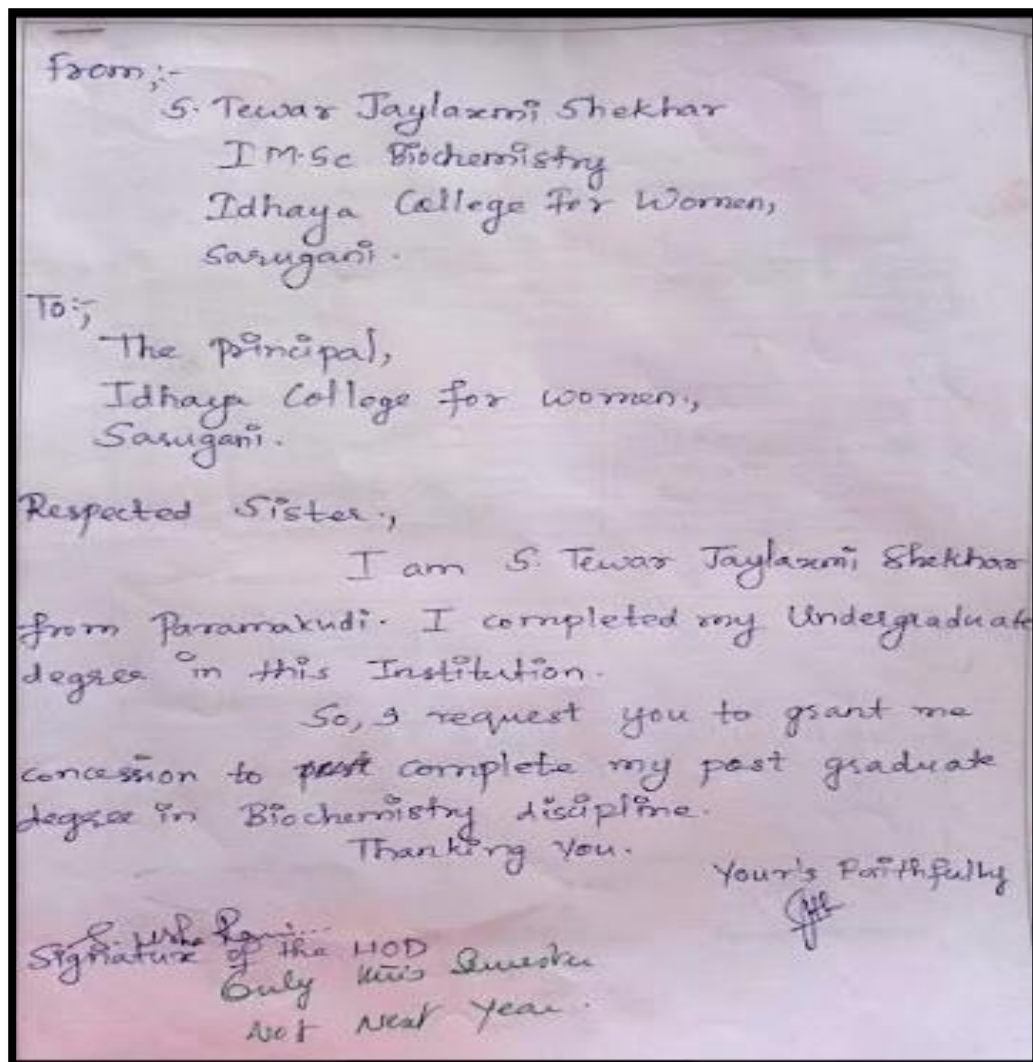 From:-
S. Tewar Jaylaxmi Shekhar
I M.Sc Biochemistry
Idhaya College For Women,
Sarugani.
To:,
The principal,
Idhaya College for women.,
Sarugani.
Respected Sister.,
I am S. Tewar Jaylaxmi Shekhar
from Paramakudi. I completed my Undergraduate
degree in this Institution.
So, I request you to grant me
concession to complete my post graduate
degree in Biochemistry discipline.
Thanking You.
Your's Faithfully
S. Usha Rani...
Signature of the HOD
Only this Semester
Not Next Year.